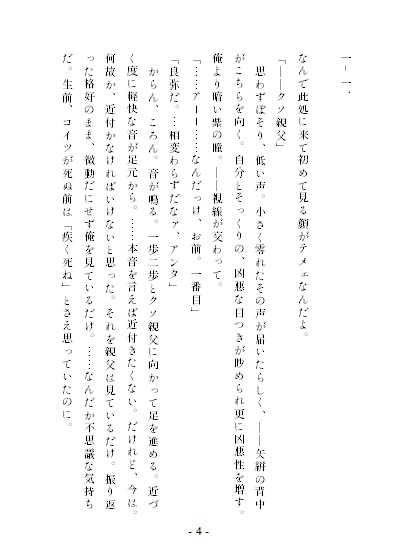 一－一、
なんで此処に来て初めて見る顔がテメェなんだよ。
「――クソ親父」
　思わずぼそり、低い声。小さく零れたその声が届いたらしく、――矢絣の背中
がこちらを向く。自分とそっくりの、凶悪な目つきが眇められ更に凶悪性を増す。
俺より暗い紫の瞳。――視線が交わって。
「……アーー……なんだっけ、お前。一番目」
「良弥だ。…相変わらずだなァ、アンタ」
　からん、ころん。音が鳴る。一歩二歩とクソ親父に向かって足を進める。近づ
く度に軽快な音が足元から。……本音を言えば近付きたくない。だけれど、今は。
何故か、近付かなければいけないと思った。それを親父は見ているだけ。振り返
った格好のまま、微動だにせず俺を見ているだけ。……なんだか不思議な気持ち
だ。生前、コイツが死ぬ前は「疾く死ね」とさえ思っていたのに。
- 4 -